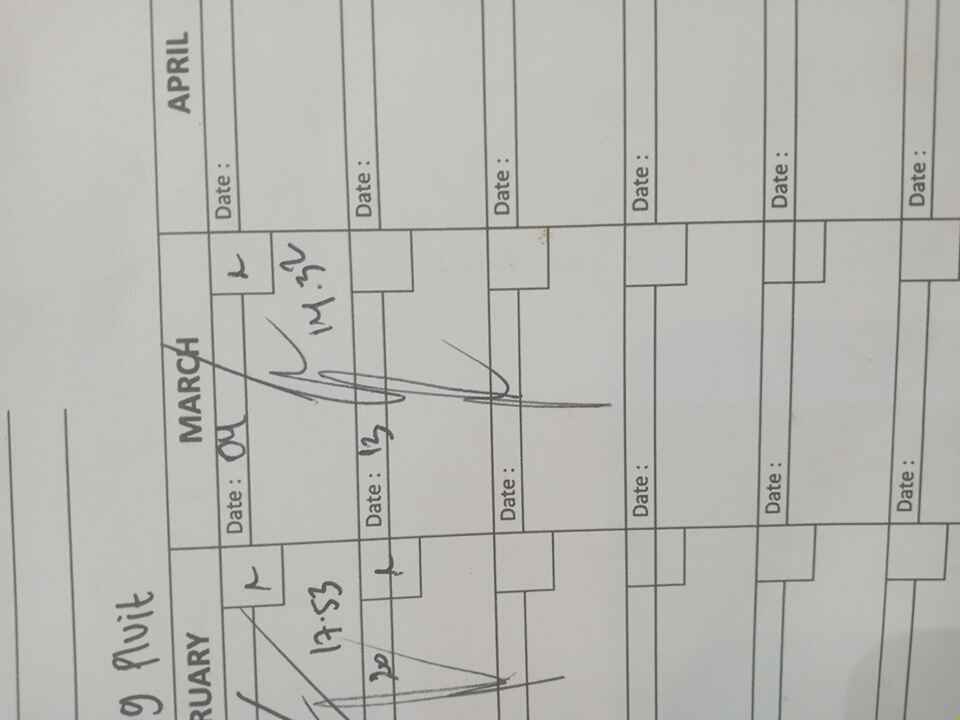 g Pluit
RUARY MARCH APRIL
Date : 04 Date :
17.53 14.32
20 Date : 13 Date :
Date : Date :
Date : Date :
Date : Date :
Date : Date :